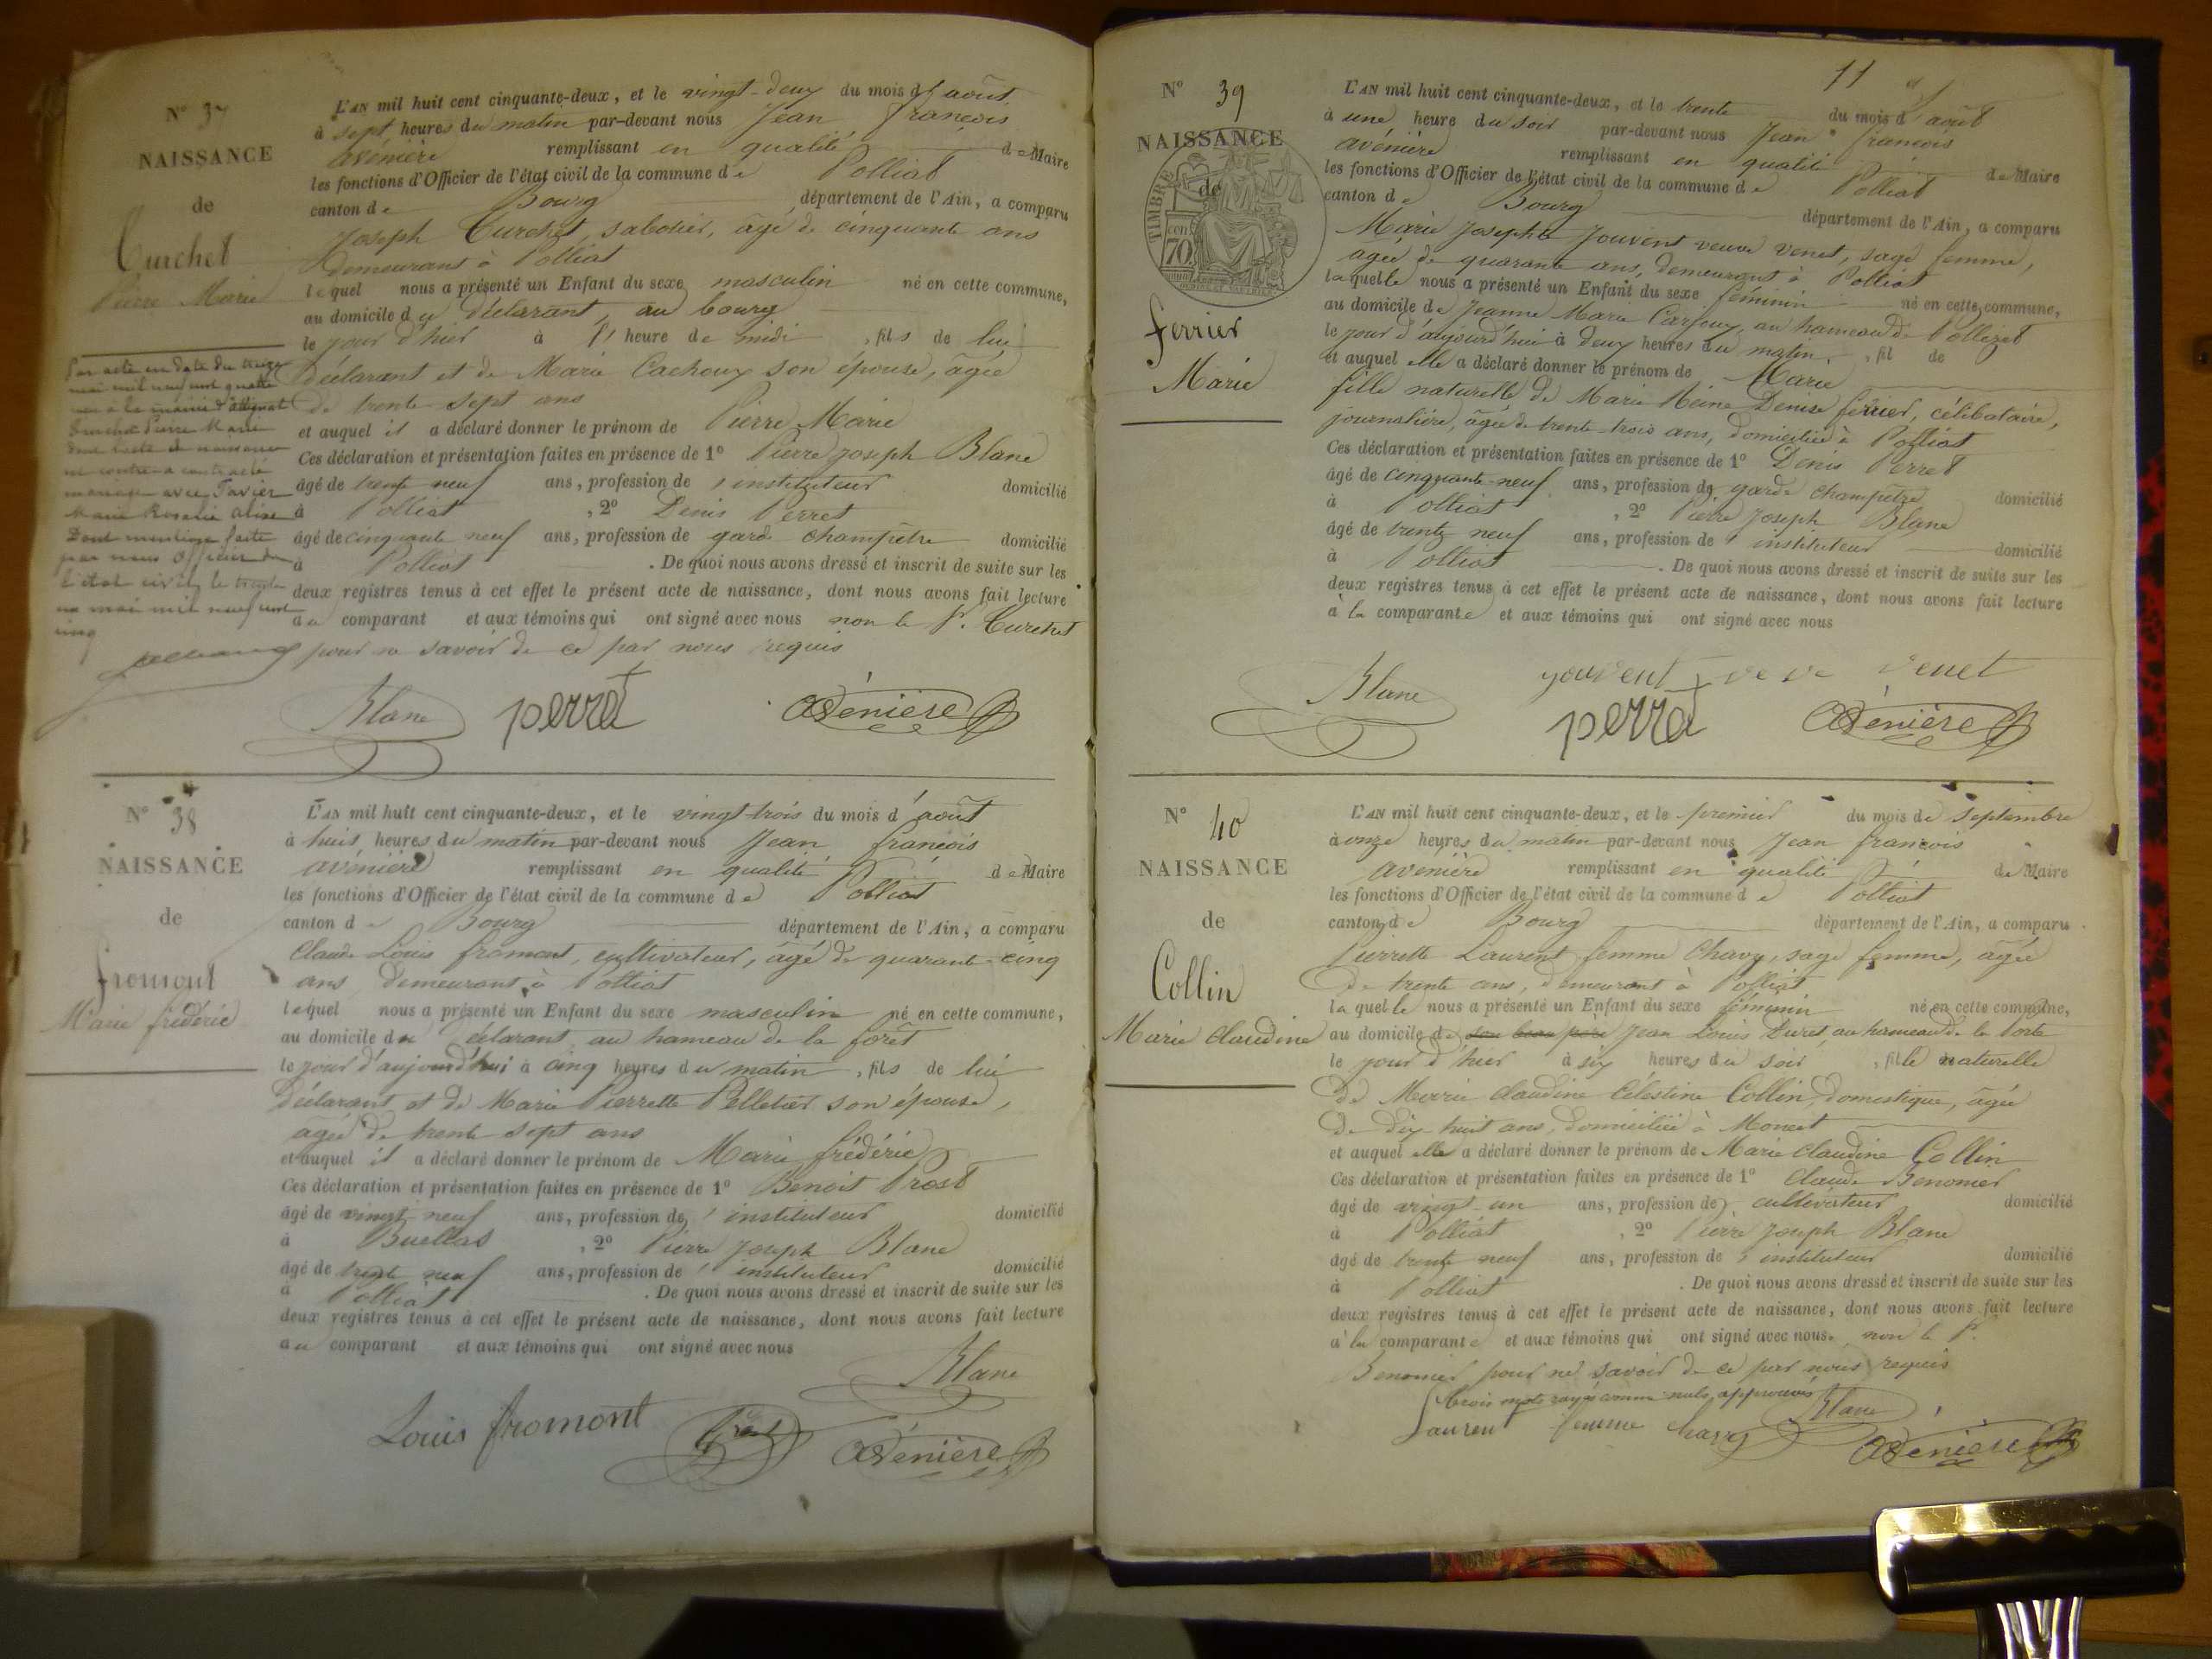 N° 37
NAISSANCE
de
Curchet
Pierre Marie
Par acte en date du treize
mai mil neuf cent quatre
à la mairie d'attignat
Curchet Pierre Marie
dont l'acte de naissance
est contre a contracté
mariage avec Tavier
Marie Rosalie Alise
Dont mention faite
par nous Officier de
l'état civil le trente
un mai mil neuf cent
cinq
L'AN mil huit cent cinquante-deux, et le vingt-deux du mois d'août
à sept heures du matin par-devant nous Jean françois
avénière remplissant en qualité de Maire
les fonctions d'Officier de l'état civil de la commune de Polliat
canton de Bourg département de l'Ain, a comparu
Joseph Curchet, sabotier, âgé de cinquante ans
demeurant à Polliat
lequel nous a présenté un Enfant du sexe masculin né en cette commune,
au domicile du déclarant, au bourg
le jour d'hier à l'heure de midi, fils de lui
déclarant et de Marie Cachoux son épouse, âgée
de trente sept ans
et auquel il a déclaré donner le prénom de Pierre Marie
Ces déclaration et présentation faites en présence de 1° Pierre Joseph Blanc
âgé de trente neuf ans, profession de instituteur domicilié
à Polliat, 2° Denis Perret
âgé de cinquante neuf ans, profession de garde champêtre domicilié
à Polliat. De quoi nous avons dressé et inscrit de suite sur les
deux registres tenus à cet effet le présent acte de naissance, dont nous avons fait lecture
au comparant et aux témoins qui ont signé avec nous non le P. Curchet
pour ne savoir de ce par nous requis
Blanc perret avénière
N° 38
NAISSANCE
de
fromont
Marie frédéric
L'AN mil huit cent cinquante-deux, et le vingt-trois du mois d'août
à huit heures du matin par-devant nous Jean françois
avénière remplissant en qualité de Maire
les fonctions d'Officier de l'état civil de la commune de Polliat
canton de Bourg département de l'Ain, a comparu
Claude Louis fromont, cultivateur, âgé de quarante-cinq
ans, demeurant à Polliat
lequel nous a présenté un Enfant du sexe masculin né en cette commune,
au domicile du déclarant au hameau de la forêt
le jour d'aujourd'hui à cinq heures du matin, fils de lui
déclarant et de Marie Pierrette Pelletier son épouse,
âgée de trente sept ans
et auquel il a déclaré donner le prénom de Marie frédéric
Ces déclaration et présentation faites en présence de 1° Benoit Prost
âgé de vingt-neuf ans, profession de instituteur domicilié
à Buellas, 2° Pierre Joseph Blanc
âgé de trente neuf ans, profession de instituteur domicilié
à Polliat. De quoi nous avons dressé et inscrit de suite sur les
deux registres tenus à cet effet le présent acte de naissance, dont nous avons fait lecture
au comparant et aux témoins qui ont signé avec nous
Blanc
Louis fromont Prost avénière
11
N° 39
NAISSANCE
de
TIMBRE
70 cent
ferrier
Marie
L'AN mil huit cent cinquante-deux, et le trente du mois d'août
à une heure du soir par-devant nous Jean françois
avénière remplissant en qualité de Maire
les fonctions d'Officier de l'état civil de la commune de Polliat
canton de Bourg département de l'Ain, a comparu
Marie Josephte Jouvent veuve Venet, sage femme,
âgée de quarante ans, demeurant à Polliat
laquelle nous a présenté un Enfant du sexe féminin né en cette commune,
au domicile de Jeanne Marie Carjoux, au hameau de Pollezet
le jour d'aujourd'hui à deux heures du matin, fil de
et auquel elle a déclaré donner le prénom de Marie
fille naturelle de Marie Reine Denise ferrier, célibataire,
journalière, âgée de trente-trois ans, domiciliée à Polliat
Ces déclaration et présentation faites en présence de 1° Denis Perret
âgé de cinquante-neuf ans, profession de garde champêtre domicilié
à Polliat, 2° Pierre Joseph Blanc
âgé de trente neuf ans, profession de instituteur domicilié
à Polliat. De quoi nous avons dressé et inscrit de suite sur les
deux registres tenus à cet effet le présent acte de naissance, dont nous avons fait lecture
à la comparante et aux témoins qui ont signé avec nous
Blanc jouvent veve venet
perret avénière
N° 40
NAISSANCE
de
Collin
Marie Claudine
L'AN mil huit cent cinquante-deux, et le premier du mois de septembre
à onze heures du matin par-devant nous Jean françois
avénière remplissant en qualité de Maire
les fonctions d'Officier de l'état civil de la commune de Polliat
canton de Bourg département de l'Ain, a comparu
Pierrette Laurent femme Chavy, sage femme, âgée
de trente ans, demeurant à Polliat
laquelle nous a présenté un Enfant du sexe féminin né en cette commune,
au domicile de son beau père Jean Louis Duret, au hameau de la Porte
le jour d'hier à six heures du soir, fille naturelle
de Marie Claudine Célestine Collin, domestique, âgée
de dix-huit ans, domiciliée à Moncet
et auquel elle a déclaré donner le prénom de Marie Claudine Collin
Ces déclaration et présentation faites en présence de 1° Claude Benonier
âgé de vingt-un ans, profession de cultivateur domicilié
à Polliat, 2° Pierre Joseph Blanc
âgé de trente neuf ans, profession de instituteur domicilié
à Polliat. De quoi nous avons dressé et inscrit de suite sur les
deux registres tenus à cet effet le présent acte de naissance, dont nous avons fait lecture
à la comparante et aux témoins qui ont signé avec nous, non le P.
Benonier pour ne savoir de ce par nous requis
trois mots rayés comme nuls, approuvés Blanc
Laurent femme chavy avénière